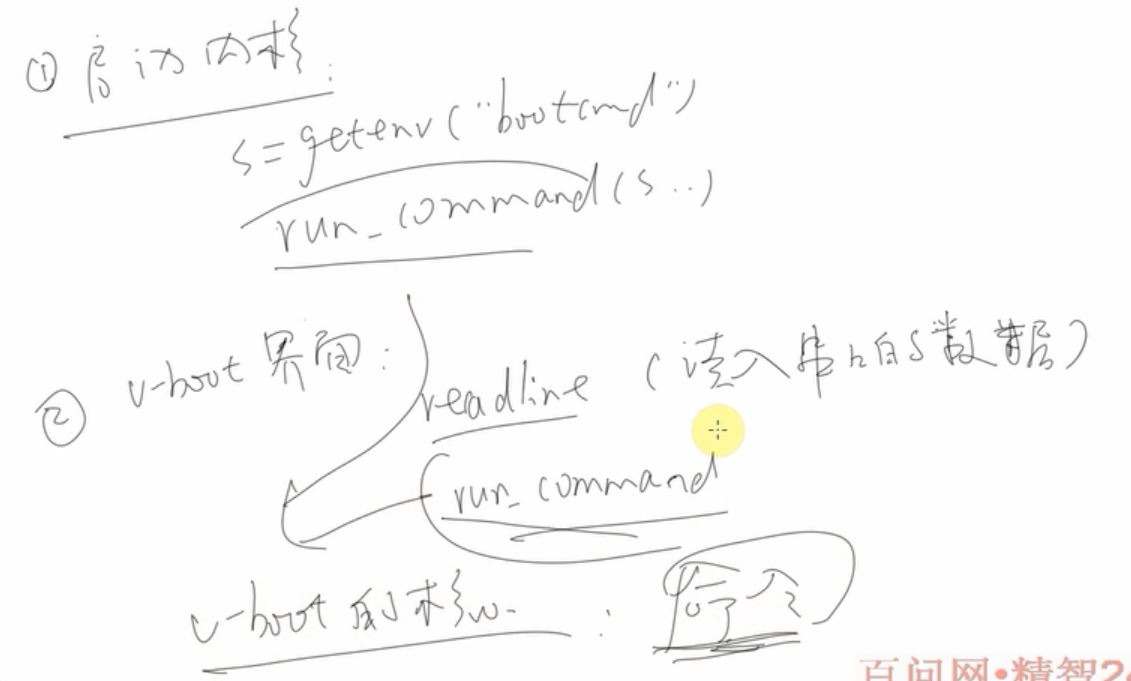 ① 启动内核:
s=getenv("bootcmd")
run_command(s..)
② u-boot 界面:
readline (读入串口的数据)
run_command
u-boot 的核心: 命令
百问网•精智2